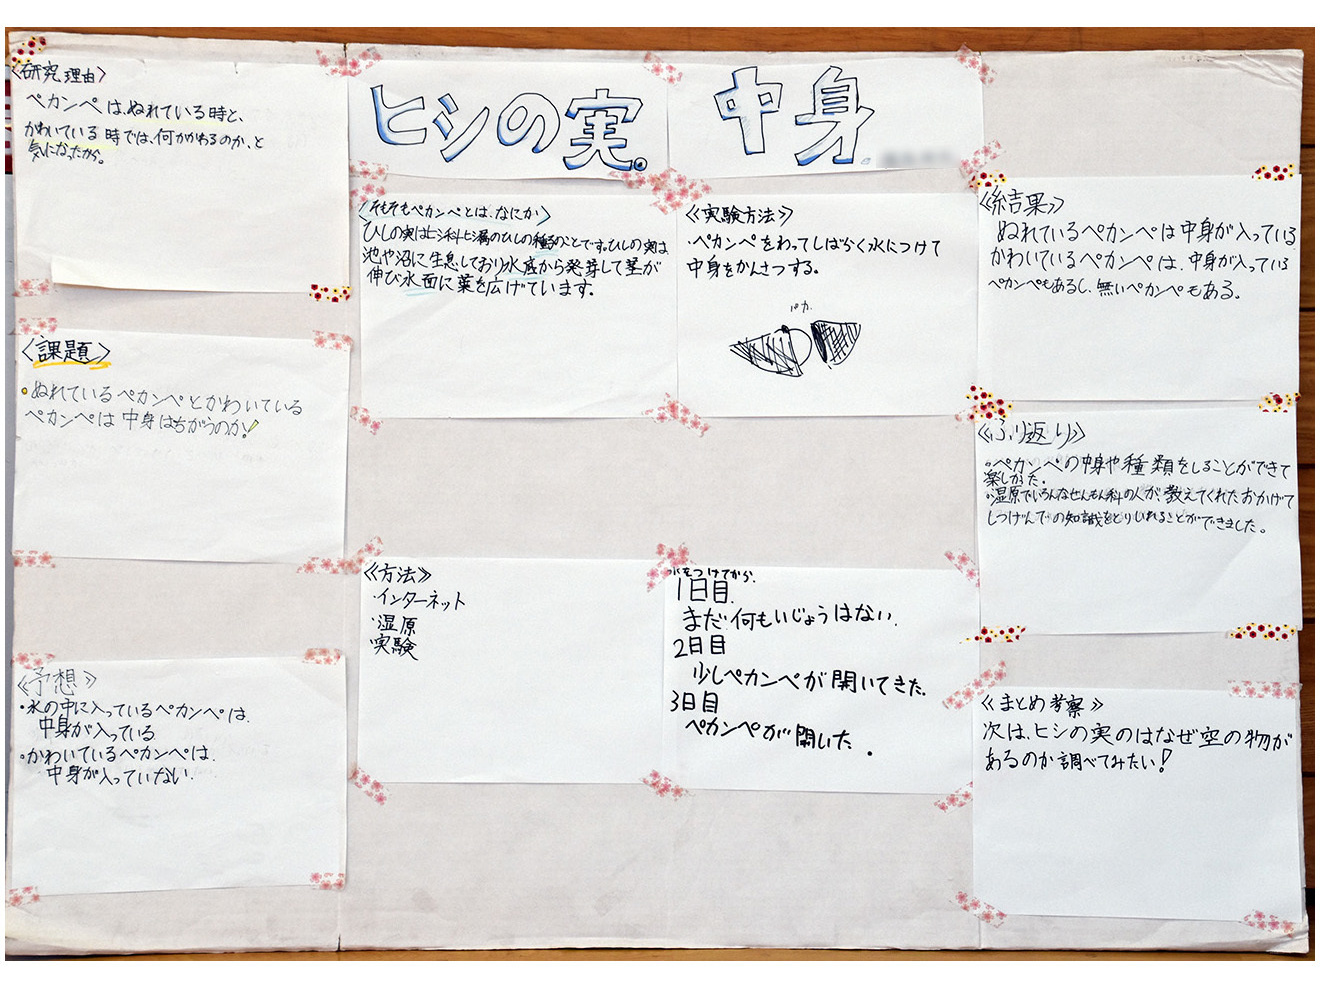 ヒシの実。中身.
〈研究理由〉
ペカンペは、ぬれている時と、
かわいている時では、何がかわるのか、と
気になったから。
〈課題〉
・ぬれているペカンペとかわいている
ペカンペは中身はちがうのか!
《予想》
・水の中に入っているペカンペは、
中身が入っている
・かわいているペカンペは、
中身が入っていない.
〈そもそもペカンペとは、なにか〉
ひしの実はヒシ科ヒシ属のひしの種子のことです。ひしの実は
池や沼に生息しており水底から発芽して茎が
伸び水面に葉を広げています。
《方法》
・インターネット
・湿原
・実験
《実験方法》
・ペカンペをわってしばらく水につけて
中身をかんさつする。
パカ
水をつけてから、
1日目.
まだ何もいじょうはない.
2日目
少しペカンペが開いてきた.
3日目
ペカンペが開いた.
《結果》
ぬれているペカンペは中身が入っている.
かわいているペカンペは、中身が入っている
ペカンペもあるし、無いペカンペもある。
《ふり返り》
・ペカンペの中身や種類をしることができて
楽しかた。
・湿原でいろんなせんもん科の人が、教えてくれたおかげで
しつげんでの知識をとりいれることができました。
《まとめ考察》
次は、ヒシの実のはなぜ空の物が
あるのか調べてみたい!